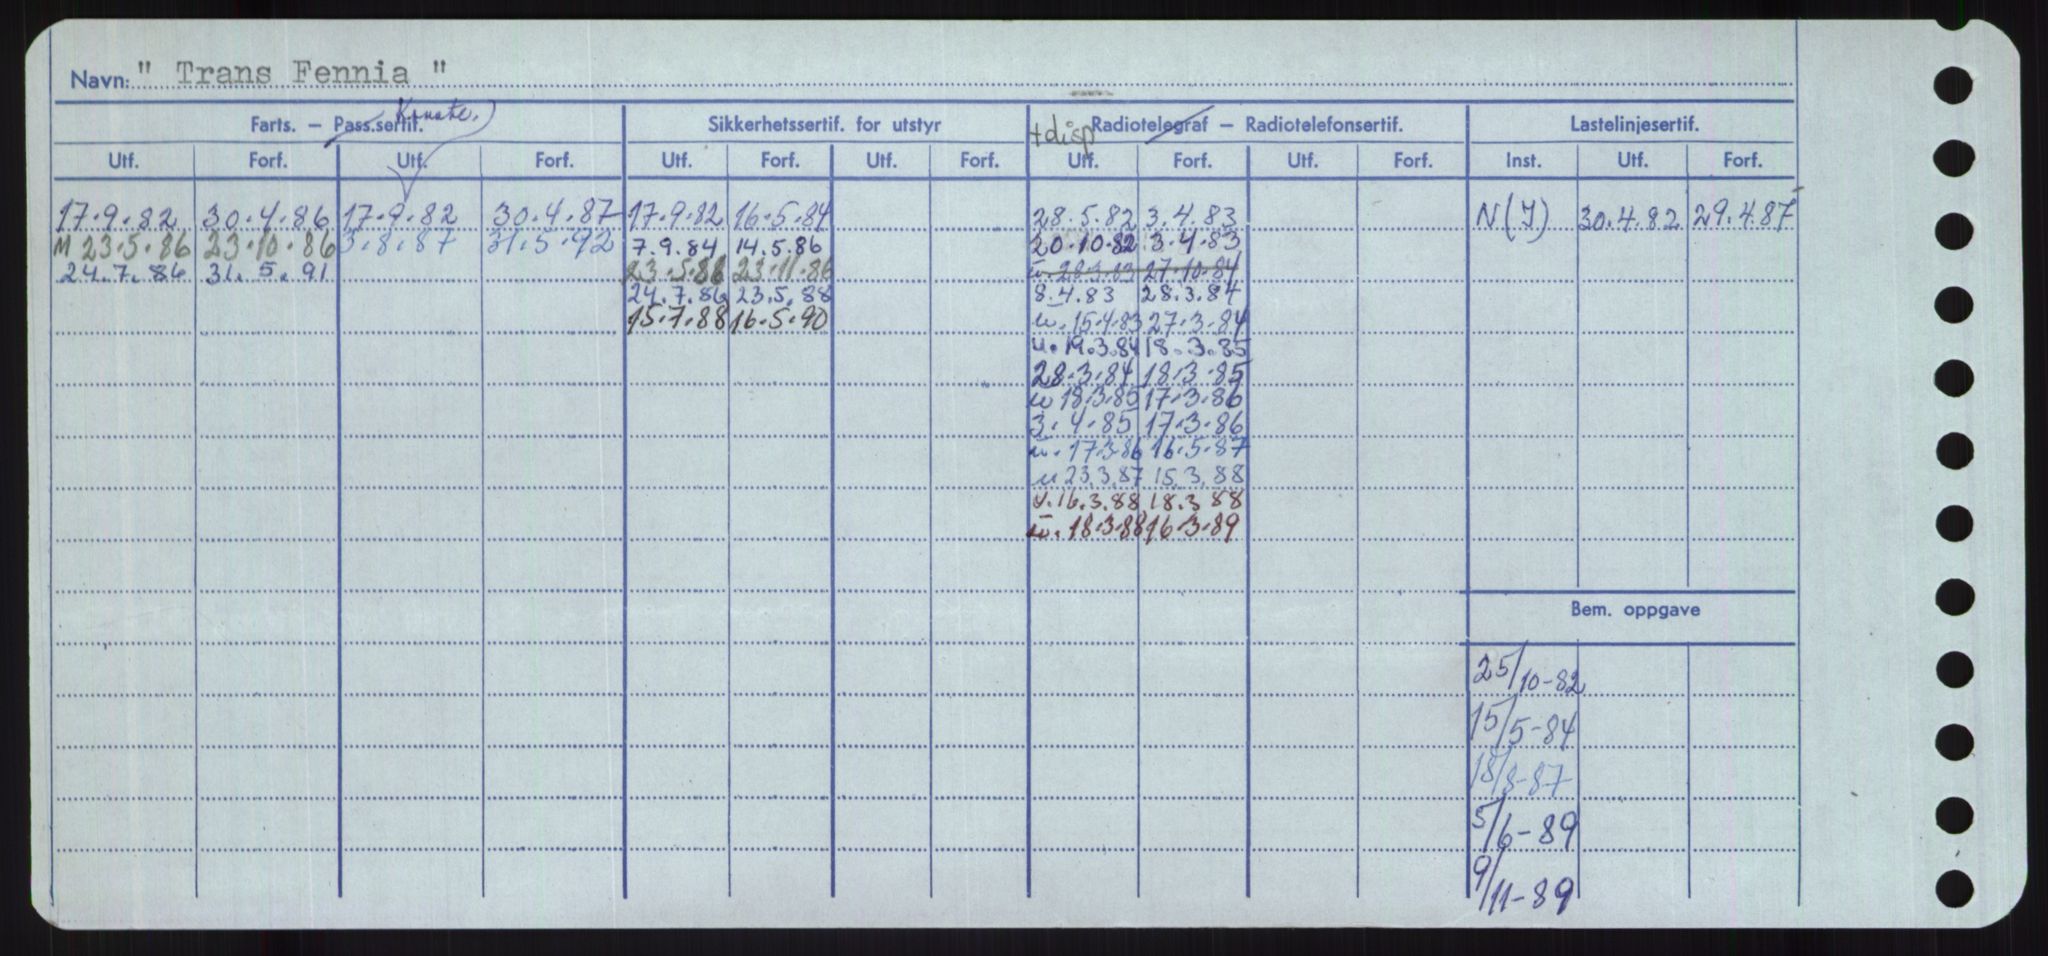 Navn: " Trans Fennia "
Farts. — Pass.sertif. Sikkerhetssertif. for utstyr + disp Radiotelegraf — Radiotelefonsertif. Lastelinjesertif.
Utf. Forf. Utf. Forf. Utf. Forf. Utf. Forf. Utf. Forf. Utf. Forf. Inst. Utf. Forf.
17.9.82 30.4.86 17.9.82 30.4.87 17.9.82 16.5.84 28.5.82 3.4.83 N(J) 30.4.82 29.4.87
M 23.5.86 23.10.86 3.8.87 31.5.92 7.9.84 14.5.86 20.10.82 3.4.83
24.7.86 31.5.91 23.5.86 23.11.86 u. 28.3.83 27.10.84
24.7.86 23.5.88 8.4.83 28.3.84
15.7.88 16.5.90 u. 15.4.83 27.3.84
u. 19.3.84 18.3.85
28.3.84 18.3.85
u 18.3.85 17.3.86
3.4.85 17.3.86
u. 17.3.86 16.5.87
u 23.3.87 15.3.88
u. 16.3.88 18.3.88
u. 18.3.88 16.3.89
Bem. oppgave
25/10-82
15/5-84
18/8-87
5/6-89
9/11-89